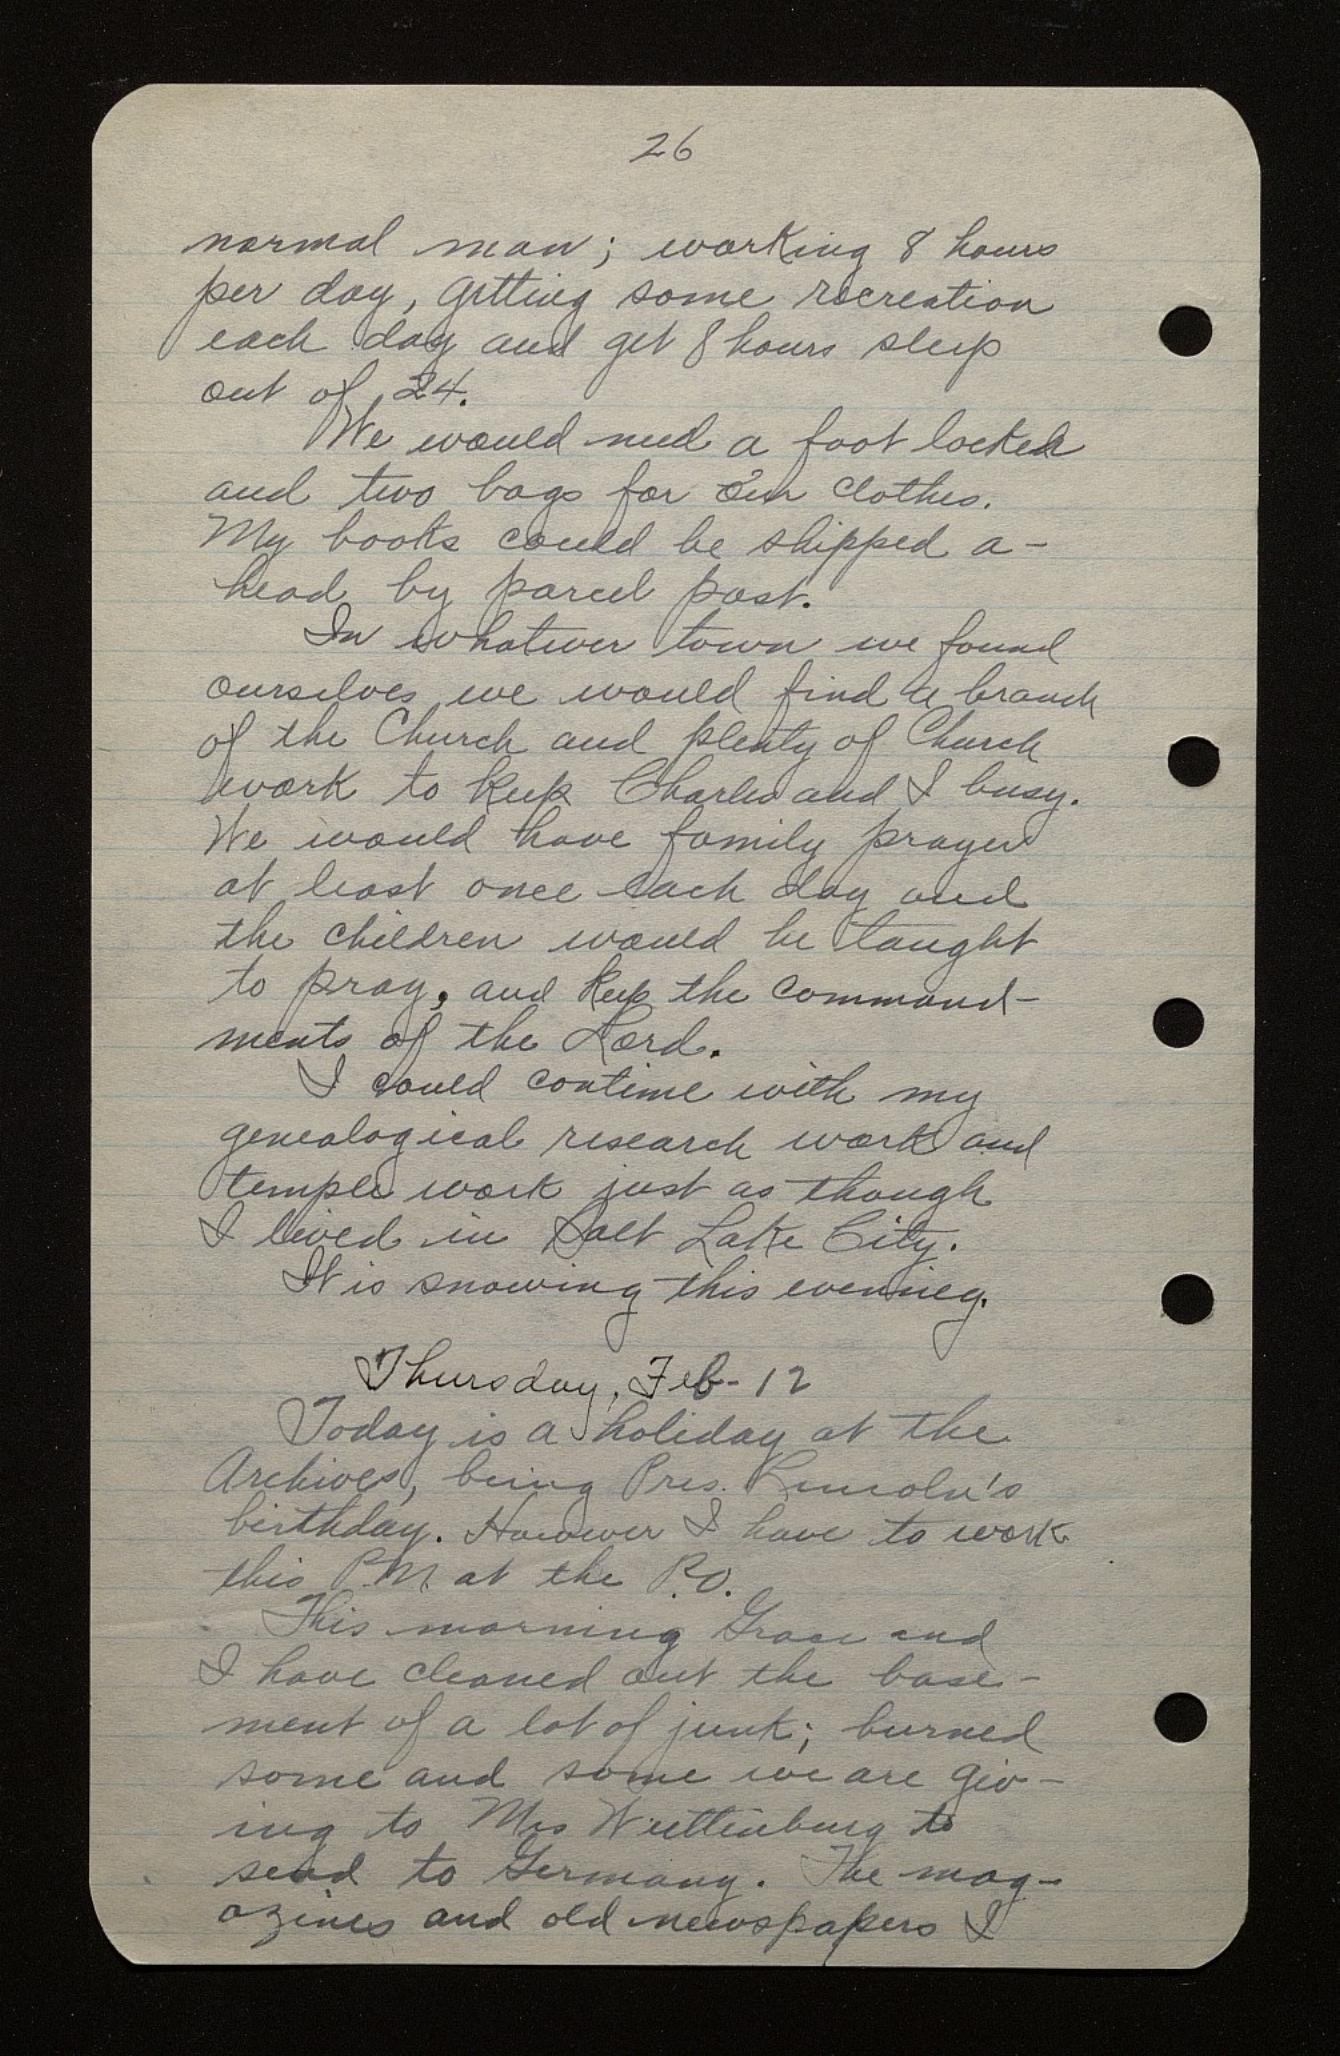 26
normal man; working 8 hours
per day, getting some recreation
each day and get 8 hours sleep
out of 24.
We would need a foot locker
and two bags for our clothes.
My books could be shipped a-
head by parcel post.
In whatever town we found
ourselves we would find a branch
of the Church and plenty of Church
work to keep Charles and I busy.
We would have family prayer
at least once each day and
the children would be taught
to pray, and keep the command-
ments of the Lord.
I could contine with my
genealogical research work and
temple work just as though
I lived in Salt Lake City.
It is snowing this evening.
Thursday, Feb- 12
Today is a holiday at the
Archives, being Pres. Lincoln's
birthday. However I have to work
this P.M. at the P.O.
This morning Grace and
I have cleaned out the base-
ment of a lot of junk; burned
some and some we are giv-
ing to Mrs to
send to Germany. The mag-
azines and old newspapers I